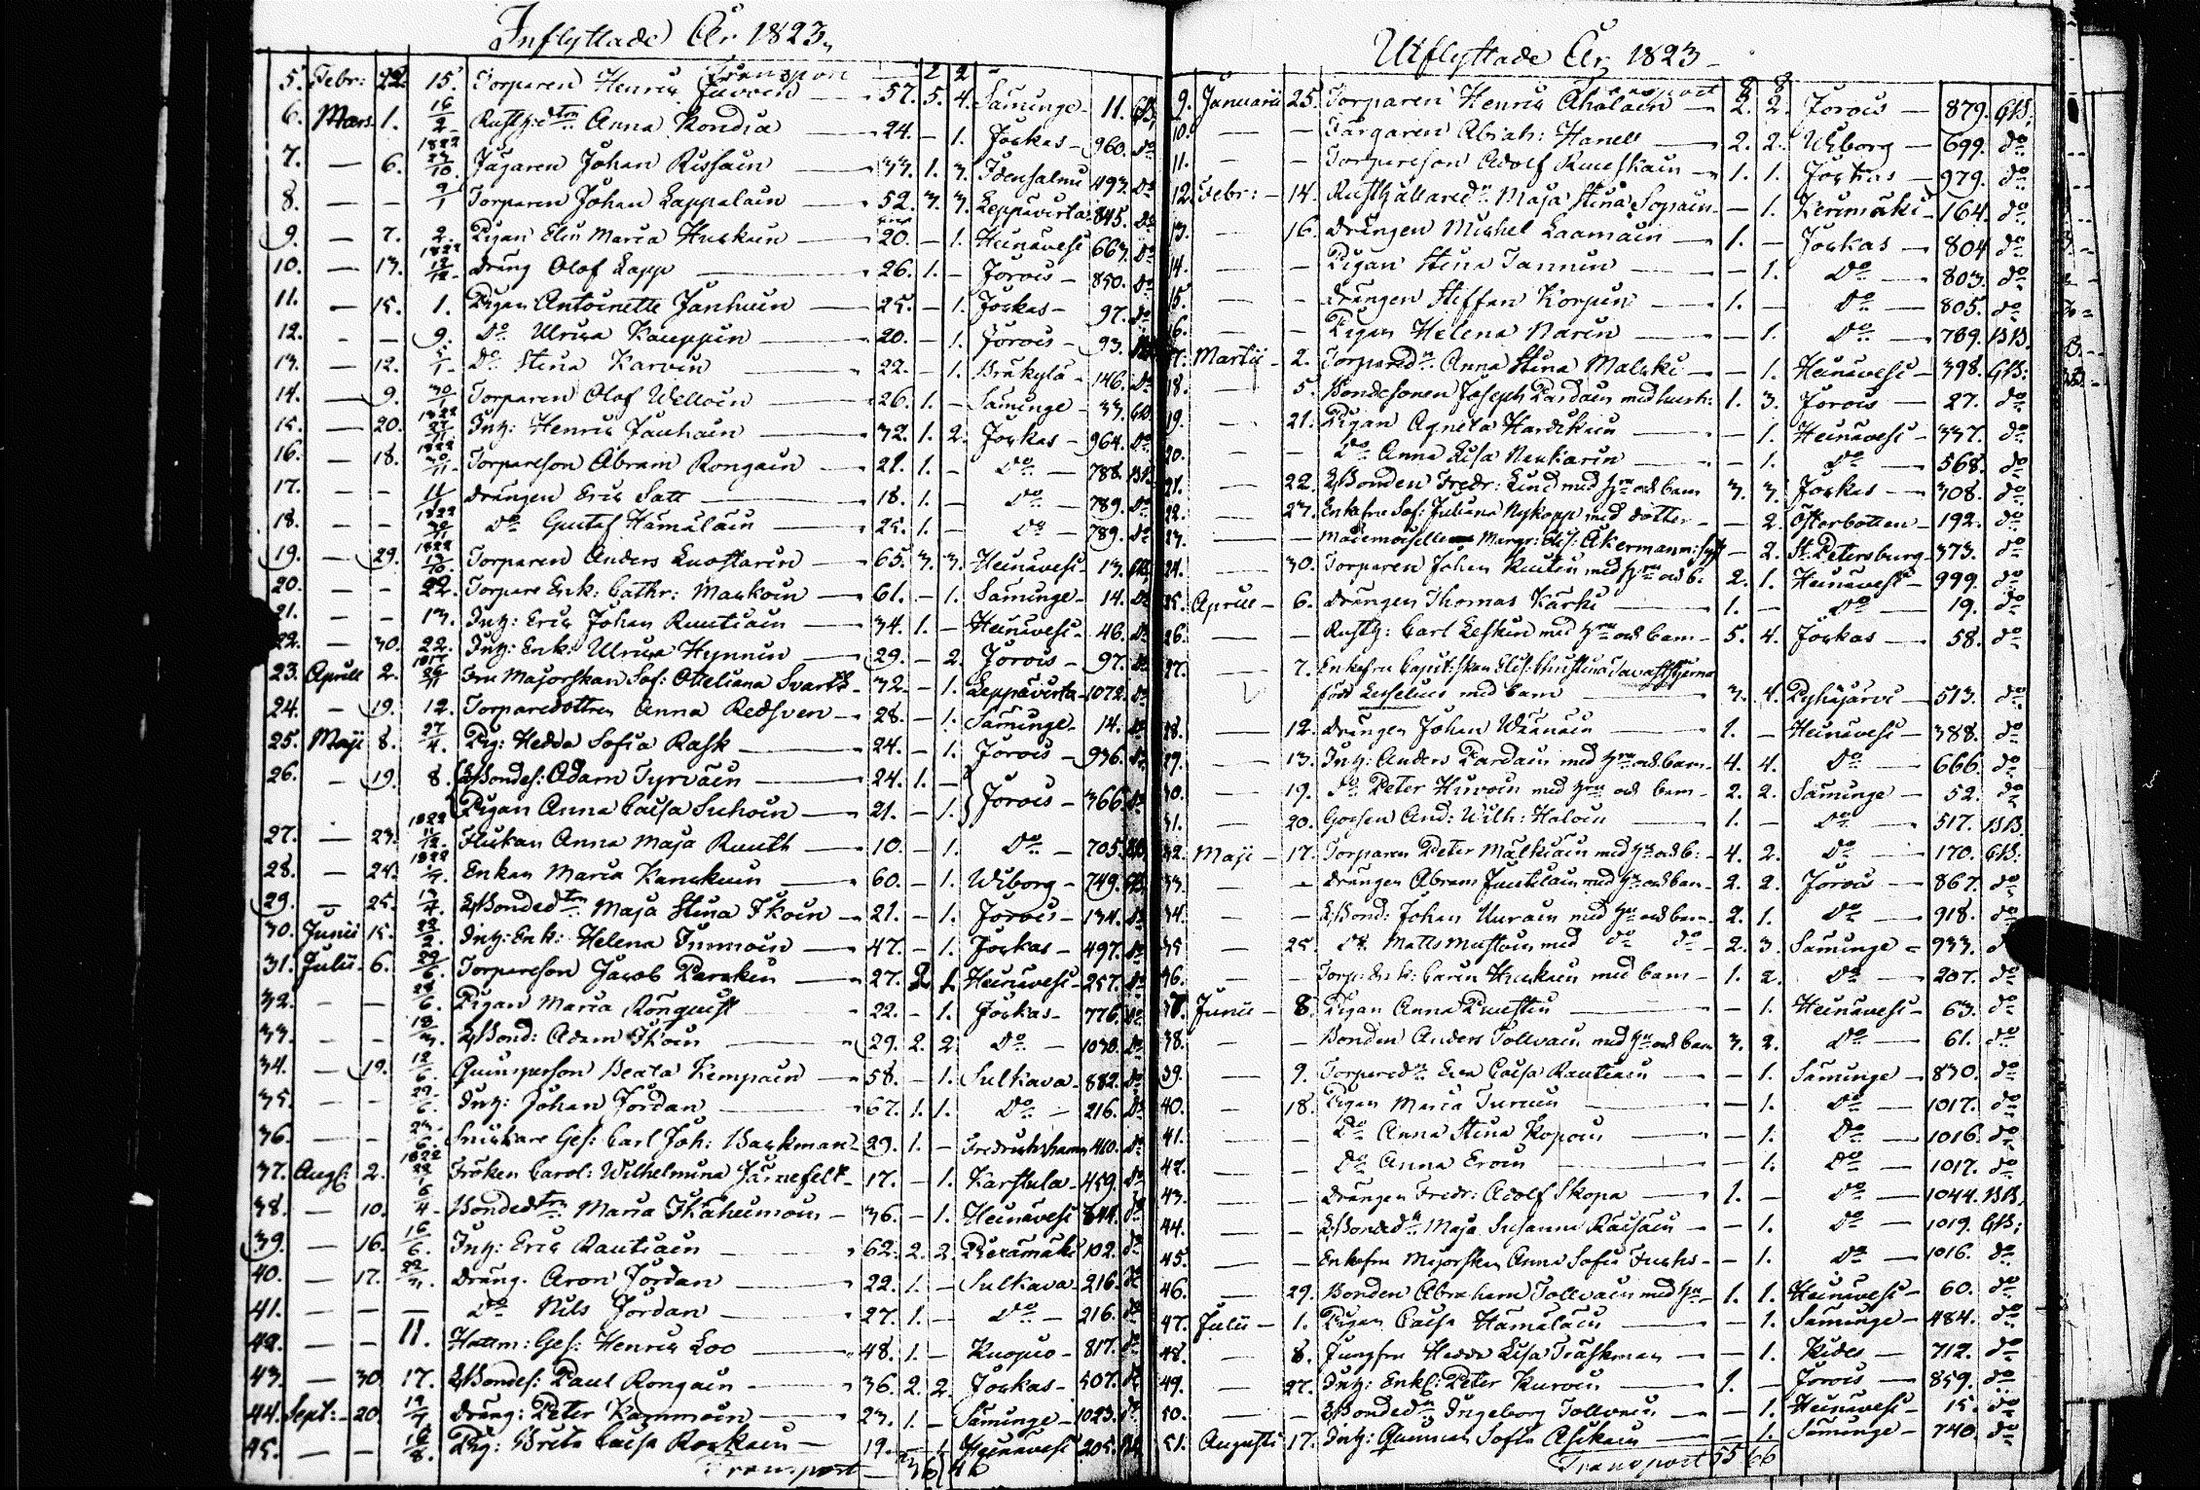 Inflyttade År 1823.
Transport 2 2
5. Febr: 22. 15. Torparen Henric Juvoin 57. 5. 4. Säminge 11. GB.
6. Mars 1. 16/2 Rusth:dtrn Anna Kondia 24. - 1. Jockas 960. Do
7. - 6. 1822 23/10 Jägaren Johan Rissain 37. 1. 3. Idensalmi 493. Do
8. - - 9/1 Torparen Johan Lappalain 52. 3. 3. Leppävirta 845. Do
9. - 7. 2. Pigan Elin Maria Huskuin 20. - 1. Heinävesi 663. Do
10. - 13. 1822 Dräng Olof Lapp 26. 1. - Jorois 850. Do
11. - 15. 1. Pigan Antoinette Janhuin 25. - 1. Jockas 97. Do
12. - - 9. Do Ulrica Kauppin 20. - 1. Jorois 93.
13. - 12. 5/1 Do Stina Karvin 22. - 1. Bräkylä 146. Do
14. - 9. 30/1 Torparen Olof Welloin 26. 1. - Säminge 33. GB
15. - 20. 1822 27/11 Inh: Henric Jauhain 32. 1. 2. Jockas 964. Do
16. - 18. 1822 30/11 Torpareson Abram Rongain 21. 1. - Do 788.
17. - - 11 Drängen Eric Satt 18. 1. - Do 789. Do
18. - - 1822 30/11 Do Gustaf Hämäläin 25. 1. - Do 789. Do
19. - 29. 1822 13/10 Torparen Anders Luostarin 65. 3. 3. Heinävesi 13. GB
20. - - 22. Torpare Enk: Cathr: Maskoin 61. - 1. Säminge 14. Do
21. - - 13. Inh: Eric Johan Rautiain 34. 1. - Heinävesi 46. Do
22. - 30. 22. Inh: Enk: Ulrica Hynnin 29. - 2. Jorois 97. Do
23. Aprill 2. Fru Majorskan Sof: Otteliana Svartz 32. - 1. Leppävirta 1072. Do
24. - 19. 12. Torparedottren Anna Redsven 28. - 1. Säminge 14. Do
25. Maji 8. 27/4. Pig: Hedda Sofia Rask 24. - 1. Jorois 936. Do
26. - 19. 8. Bondes: Adam Tyrväin 24. 1. -
Pigan Anna Caisa Suhoin 21. - 1. Jorois 366. Do
27. - 23. 1822 11/12. Flickan Anna Maja Ruuth 10. - 1. Do 705.
28. - 24. 1822 Enkan Maria Kanskuin 60. - 1. Wiborg 749. GB
29. - 25. 13/4. Bondedtrn Maja Stina Ikoin 21. - 1. Jorois 134. Do
30. Junii 15. 22/2. Inh: Enk: Helena Immoin 47. - 1. Jockas 497. Do
31. Julii 6. 29/6. Torpareson Jacob Parskin 27. 2. 1. Heinävesi 257. Do
32. - - 28/6. Pigan Maria Rönquist 22. - 1. Jockas 776. Do
33. - - 18/3. Bond: Adam Ikoin 29. 2. 2. Do 1030. Do
34. - 19. 12/6. Quinsperson Beata Kempain 58. - 1. Sulkava 882. Do
35. - - 29/6. Inh: Johan Jordan 67. 1. 1. Do 216. Do
36. - - 23/6. Snickare Ges: Carl Joh: Backman 29. 1. - Fredrichshamn 410. Do
37. Aug: 2. 1822 Fröken Carol: Wilhelmina Järnefelt 17. - 1. Karstula 459. Do
38. - 10. 6/4. Bondedtrn Maria Ikäheimoin 36. - 1. Heinävesi 844. Do
39. - 16. 16/6. Inh: Eric Rautiain 62. 2. 2. Piexämäki 102. Do
40. - 17. Dräng. Aron Jordan 22. 1. - Sulkava 216. Do
41. - - - Do Nils Jordan 27. 1. - Do 216. Do
42. - - 11. Hattm: Ges: Henric Loo 48. 1. - Kuopio 817. Do
43. - 30. 17. Bondes: Paul Rongain 36. 2. 2. Jockas 507. Do
44. Sept: 20. Dräng: Peter Kammoin 23. 1. - Säminge 1023. Do
45. - - Pig: Brita Caisa Roskain 19. - 1. Heinävesi 205.
Transport 36 46
Utflyttade År 1823
Transport 8 8
9. Januarii 25. Torparen Henric Aholain 2. 2. Jorois 879. GB.
10. - - Färgaren Abrah: Hanell 2. 2. Wiborg 699. do
11. - - Torpareson Adolf Ruuskain 1. 1. Jockas 979. do
12. Febr: 14. Rusthållaredr Maja Stina Sopain - 1. Kerimäki 164. do
13. - 16. Drängen Michel Laamain 1. - Jockas 804 do
14. - - Pigan Stina Tannin - 1. Do 803. do
15. - - Drängen Steffan Korpin 1. - Do 805. do
16. - - Pigan Helena Narin - 1. Do 789. BB.
17. Martii 2. Torparedr Anna Stina Malski - 1. Heinävesi 398. GB:
18. - 5. Bondesonen Joseph Pardain med hust: 1. 3. Jorois 27. do
19. - 21. Pigan Agneta Hardikain - 1. Heinävesi 337. do
20. - - Do Anna Lisa Neukarin - 1. Do 568. do
21. - 22. Bonden Fredr: Lind med hu och barn 3. 3. Jockas 308. do
22. - 27. Enkefru Sof: Juliana Nykopp med dotter - 2. Österbotten 192. do
23. - - Mademoiselle Margr: Elis: Åkerman: Syst - 2. St: Petersburg 373. do
24. - 30. Torparen Johan Rautin med hu och b. 2. 1. Heinävesi 999. do
25. Aprill 6. Drängen Thomas Kärki 1. - Do 19. do
26. - - Rusth: Carl Leskin med hu och barn 5. 4. Jockas 58. do
27. - 7. Enkefru Capit:skan Elis: Christina Savastsjerna
född Euselius med barn 3. 4. Pyhäjärvi 513. do
28. - 12. Drängen Johan Wäänäin 1. - Heinävesi 388. do
29. - 13. Inh: Anders Pardain med hu och barn 4. 4. Do 666. do
30. - 19. Do Peter Huvoin med hu och barn 2. 2. Säminge 52. do
31. - 20. Gossen And: Wilh: Haloin 1. - Do 517. BB.
32. Maji 17. Torparen Peter Malkiain med hu och b: 4. 2. Do 170. GB:
33. - - Drängen Abram Juutilain med hu och barn 2. 2. Jorois 867. do
34. - - Bond: Johan Uurain med hu och barn 2. 1. Do 918. do
35. - 25. Do Matts Mustoin med do do 2. 3. Säminge 933. do
36. - - Torp: Enk: Carin Huskuin med barn 1. 2. Do 207. do
37. Junii 8. Pigan Anna Puustin - 1. Heinävesi 63. do
38. - - Bonden Anders Tollvain med hu och barn 3. 2. Do 61. do
39. - 9. Torparedr Eva Caisa Rautiain - 1. Säminge 830. do
40. - 18. Pigan Maria Turuin - 1. Do 1017. do
41. - - Do Anna Stina Kopoin - 1. Do 1016. do
42. - - Do Anna Eroin - 1. Do 1017. do
43. - - Drängen Fredr: Adolf Skopa 1. - Do 1044. BB.
44. - - Bondedr Maja Susanna Räisäin - 1. Do 1019. GB:
45. - - Enkefru Majorskan Anna Sofia Fuchs - 1. Do 1016. do
46. - 29. Bonden Abraham Tollvain med hu 1. 1. Heinävesi 60. do
47. Julii 1. Pigan Caisa Hämäläin - 1. Säminge 484. do
48. - 6. Jungfru Hedda Lisa Träskman - 1. Kides 712. do
49. - 27. Inh: Enkl: Peter Kuroin 1. - Jorois 859. do
50. - - Bondedr Ingeborg Tollvain - 1. Heinävesi 15. do
51. Augusti 17. Inh: Quinnan Sofia Asikain - 1. Säminge 740. do
Transport 55 66